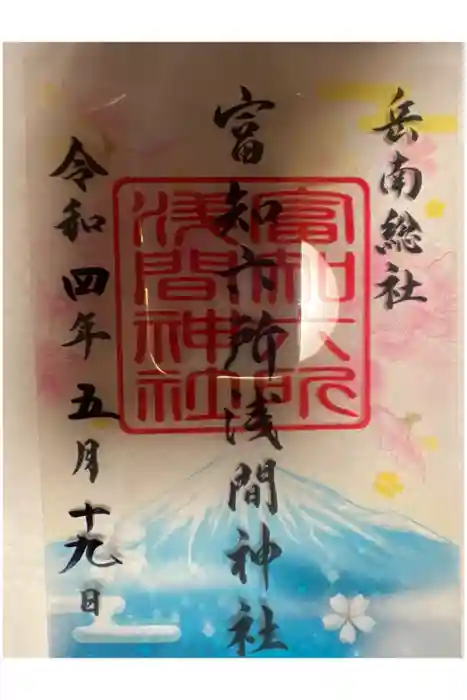 岳南総社
富知六所浅間神社
令和四年五月十九日
富知六所
浅間神社